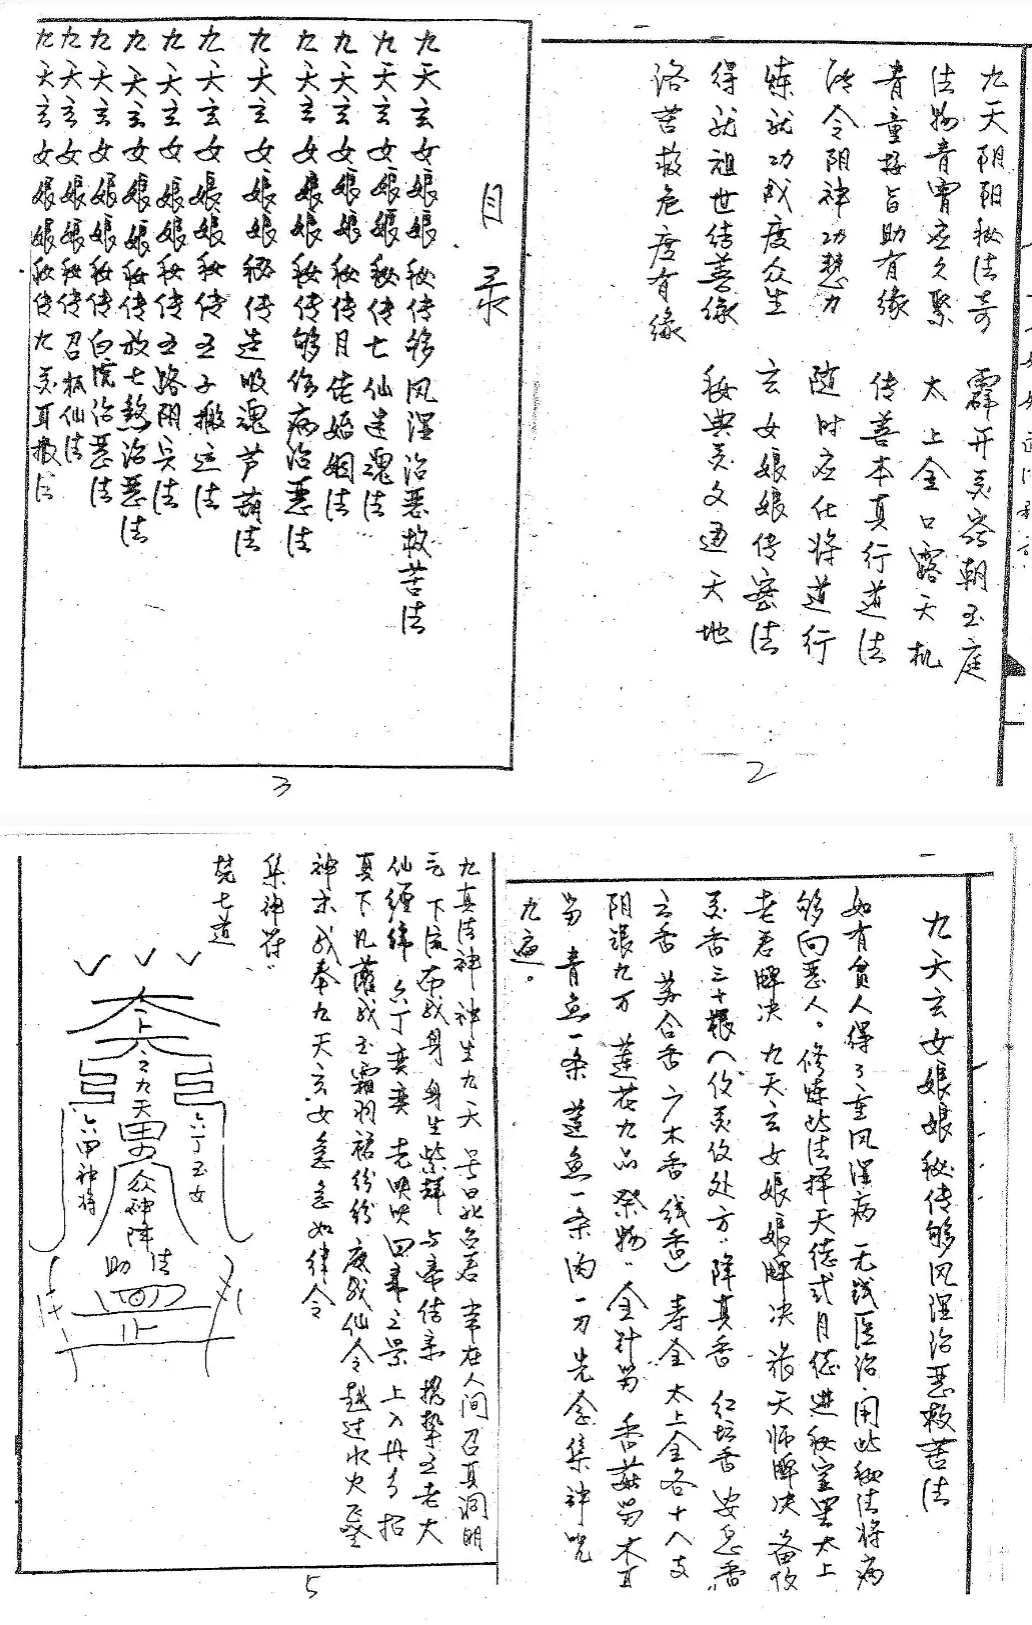 九天阴阳秘法奇 霹开灵窍朝玉庭
法易青霄应久聚 太上金口露天机
青童接旨助有缘 传善本真行道法
法令阴神功慧力 随时应化将道行
炼就功成度众生 玄女娘娘传密法
得就祖世结善缘 秘典灵文通天地
洛苦救危度有缘
2
目录
九天玄女娘娘秘传移风湿治恶救苦法
九天玄女娘娘秘传七仙迷魂法
九天玄女娘娘秘传月佬婚姻法
九天玄女娘娘秘传移伤病治恶法
九天玄女娘娘秘传造吸魂芦葫法
九天玄女娘娘秘传五子搬运法
九天玄女娘娘秘传五路阴兵法
九天玄女娘娘秘传放七煞治恶法
九天玄女娘娘秘传白虎治恶法
九天玄女娘娘秘传召狐仙法
九天玄女娘娘秘传九灵耳报法
3
九天玄女娘娘秘传移风湿治恶救苦法
如有贫人得了重风湿病 无钱医治 用此秘法将病
移向恶人。修炼此法择天德或月德进秘室 太上
老君牌决 九天玄女娘娘牌决 张天师牌决 备
灵香三十根 处方:降真香 红坛香 安息香
玄香 苏合香 广木香 线香) 寿金 太上金各十八支
阴银九万 莲花九品 祭物:金针 香菇 木耳
青鱼一条 鲢鱼一条 肉一刀 先念集神咒
九遍。
九真法神 神生九天 号曰北台君 常在人间 召真洞明
元 下流布我身 身生紫辉 与帝结亲 携挚五老大
仙缠绵 六丁奕奕 光映映 四塞之景 上入丹 招
真下凡 躍我玉霜 羽裙纷纷 庇我仙令 越过水火 飞登
神京 我奉九天玄女急急如律令
集神符:
焚七道
太上
之九天
众神降
助法
六丁玉女
六甲神将
5